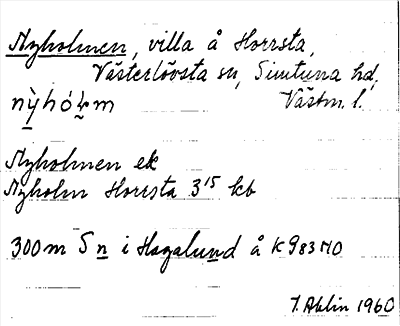 Nyholmen, villa å Horrsta,
Västerlövsta sn, Simtuna hd,
Västm. l.
Nyholmen ek
Nyholm Horrsta 3¹⁵ kb
300 m S n i Hagalund å K 983 NO
T. Ahlin 1960